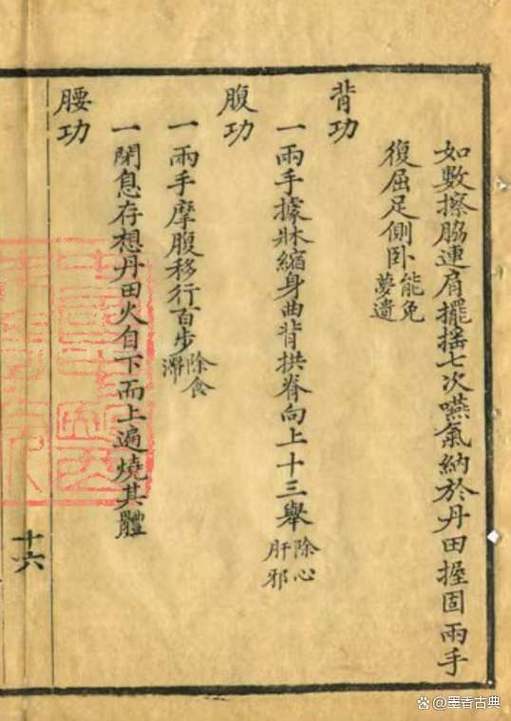 如數擦脇連肩擺揺七次嚥氣納於丹田握固兩手
復屈足側卧能免夢遺
背功
一兩手據牀縮身曲背拱脊向上十三舉除心肝邪
腹功
一兩手摩腹移行百步除食滯
一閉息存想丹田火自下而上遍燒其體
腰功
十六
@墨香古典